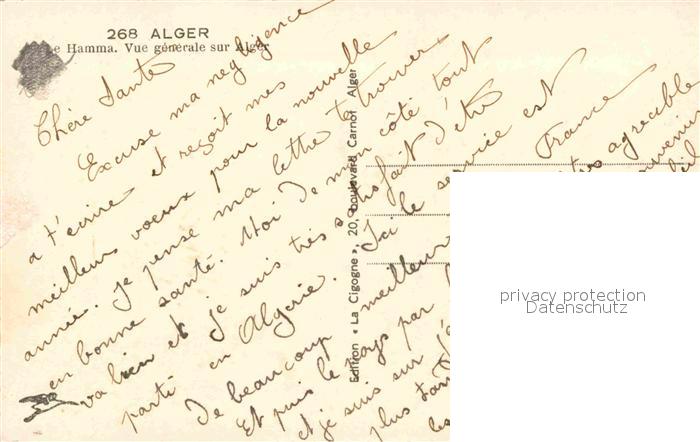 268 ALGER
Le Hamma. Vue générale sur Alger
Chère Tante
Excuse ma négligence
a t'écrire et reçoit mes
meilleurs voeux pour la nouvelle
année. Je pense ma lettre te trouver
en bonne santé. Moi de mon côté tout
va bien et je suis très satisfait d'être
parti en Algérie. Ici le service est
de beaucoup meilleur France
Et puis le pays par très agréable
et je suis sur souvenir
plus tard
les
Edition « La Cigogne », 20, boulevard Carnot Alger
privacy protection
Datenschutz